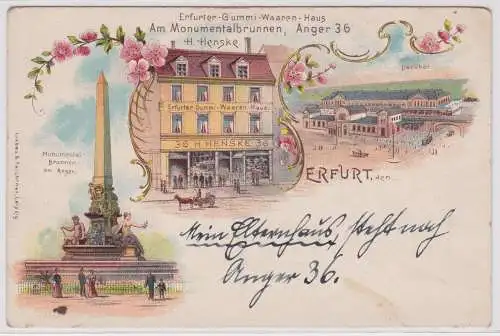 Erfurter-Gummi-Waaren-Haus
Am Monumentalbrunnen, Anger 36
H. Henske
Bahnhof.
Erfurter Gummi-Waaren Haus.
36 H. HENSKE 36
Monumental
Brunnen
am Anger.
ERFURT, den
Mein Elternhaus, steht noch
Anger 36.